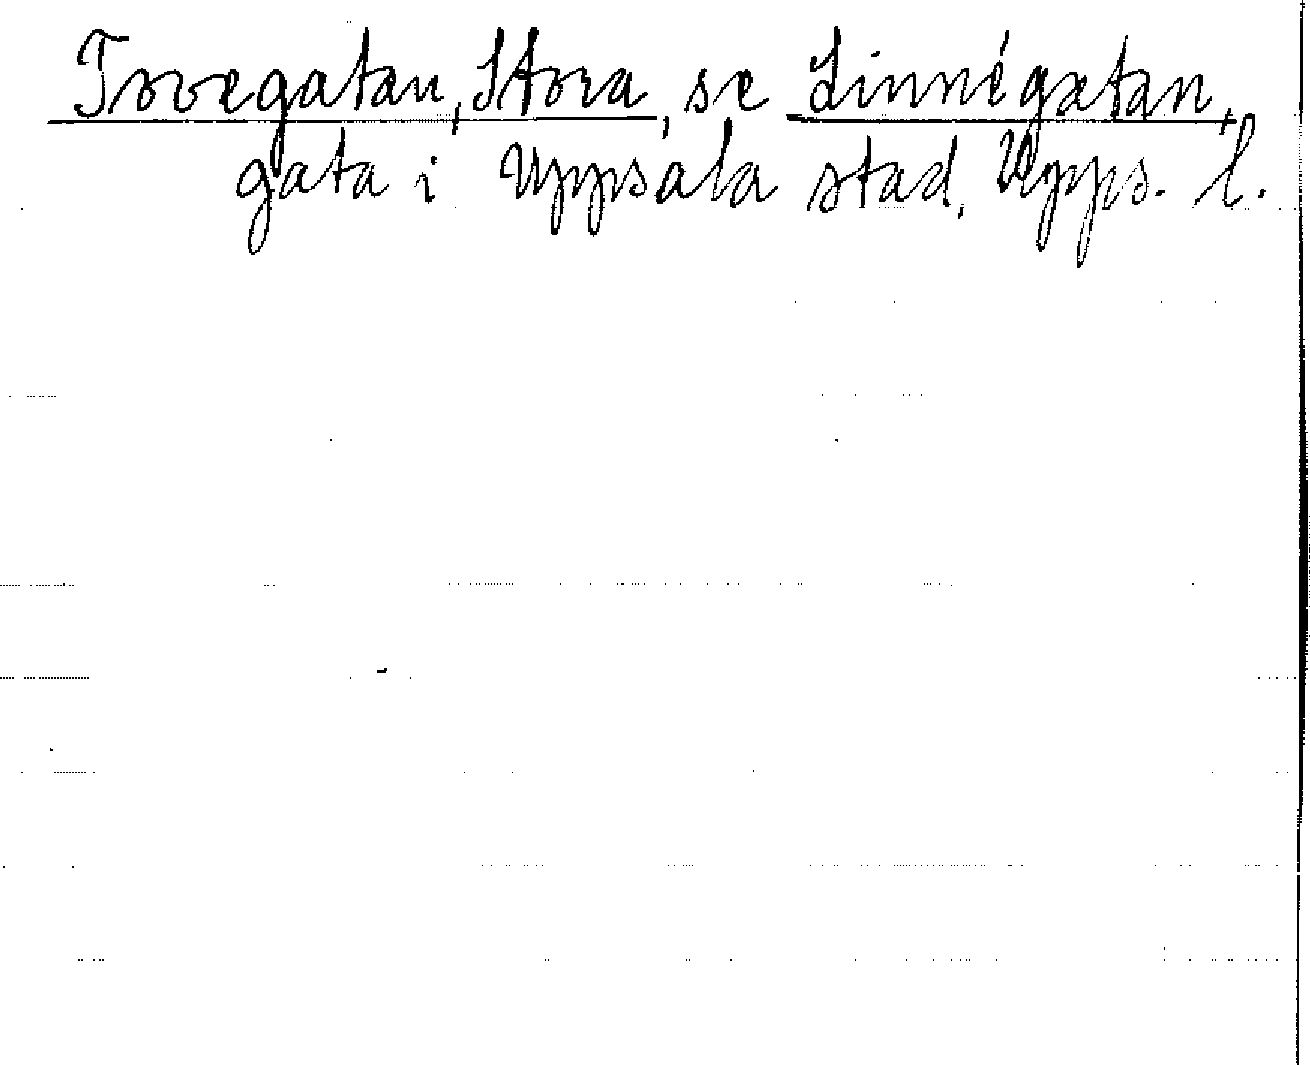 Trovegatan, Stora, se Linnégatan,
gata i Uppsala stad, Upps. l.